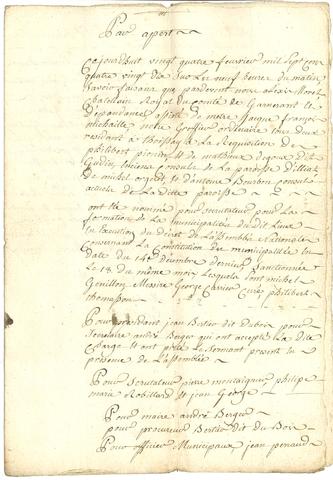 Par aport
Cejourdhuit vingt quatre feuvrier mil sept cen
quatre vingt dix sur les neuf heures du matin
savoir faisons que pardevant nous alexis Morel
Chatellain Royal du Comté de Garnerant et
Dépendances assisté de maitre Jaque françois
michaille, notre Greffier ordinaire tous deux
residant à thoissey à la Requisition de
philibert et de mathieux
anciens consuls de la paroisse d'illiat
de michel et d'antoine Bourbon consuls
actuels de La ditte paroisse
ont été nommé pour scrutateur pour La
formation de La municipalités du dit Lieux
en Execution du décret de L'assemblée Nationale
Concernant La Constitution des municipallités en
datte du 14e décembre dernier, Sanctionnée
le 18 du même mois Lesquels sont michel
Genillon, Messire George Cavier Curé, philibert
thomasson
Pour president jean Bertier dit Dubois pour
Secretaire andré Berger qui ont accepté La dite
Charge et ont prêté le serment present en
presence de L'assemblée
Pour Scrutateur pierre montaigum philipe
marie Robillard et jean George
Pour maire andré Berger
pour procureur Bertier dit du Bois
Pour officier Municipaux, jean penaud